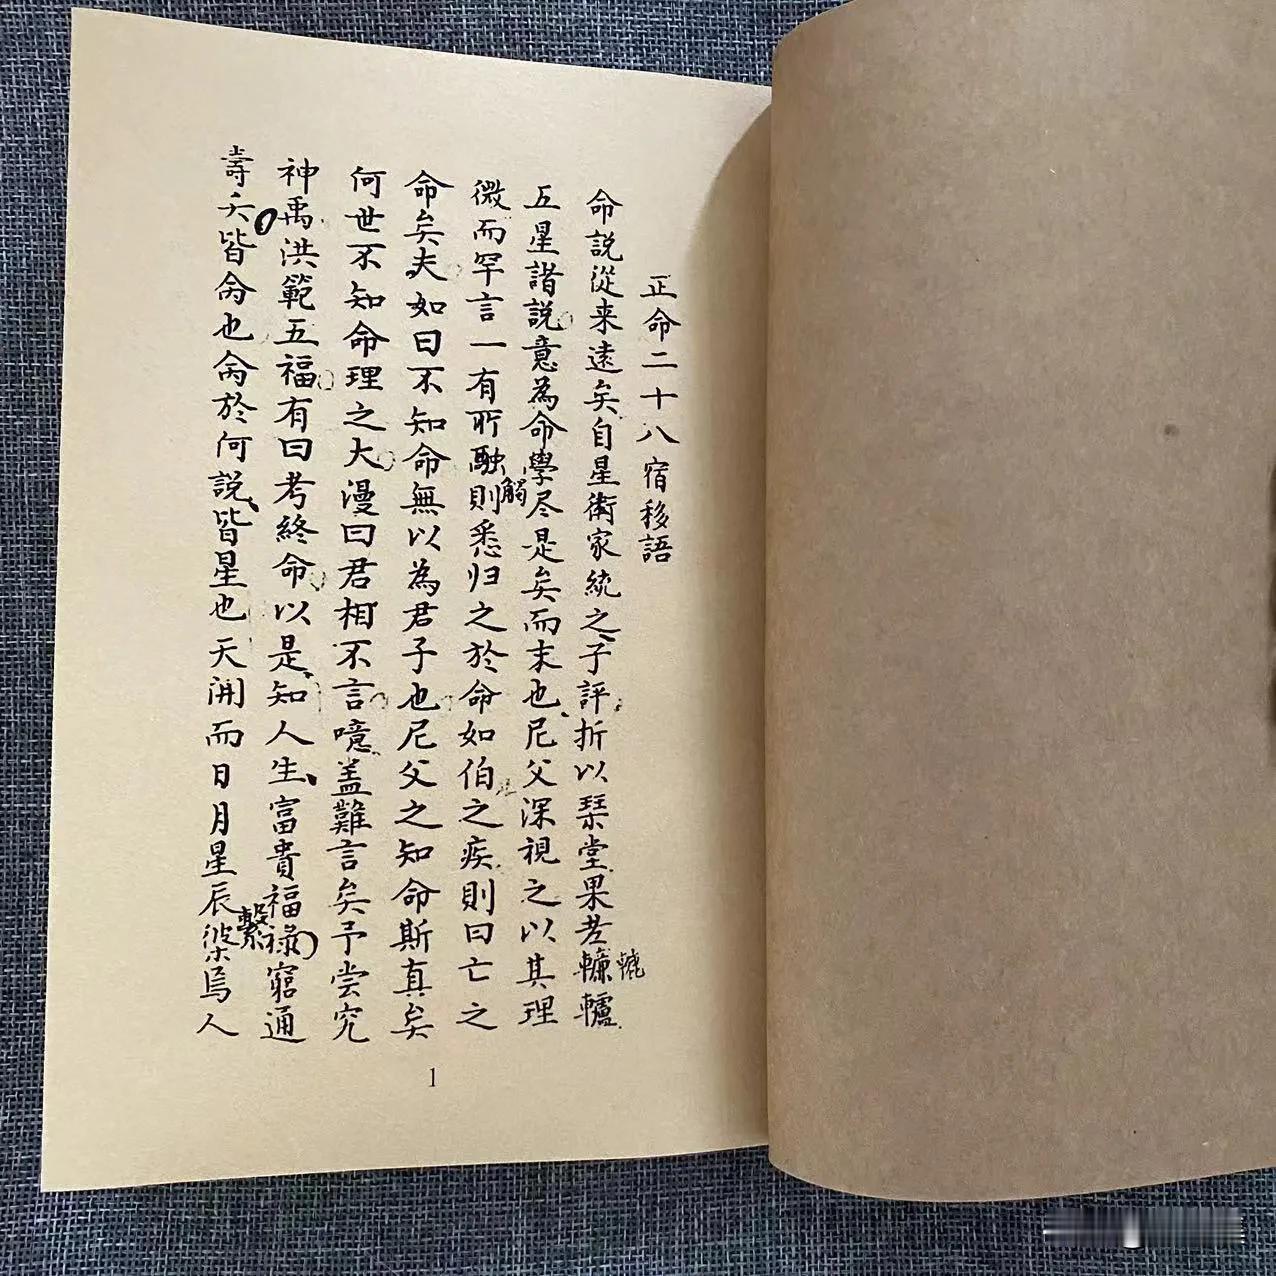 正命二十八宿移語
命説從来遠矣自星術家統之子評折以琹堂果老轣轤
轆
五星諸説意為命學尽是矣而末也尼父深視之以其理
微而罕言一有所融則悉归之於命如伯之疾則曰亡之
觸
命矣夫如曰不知命無以為君子也尼父之知命斯真矣
何世不知命理之大漫曰君相不言噫盖難言矣予尝究
神禹洪範五福有曰考終命以是知人生富貴福禄窮通
壽夭皆命也命於何説皆星也天開而日月星辰燦焉人
繫
1